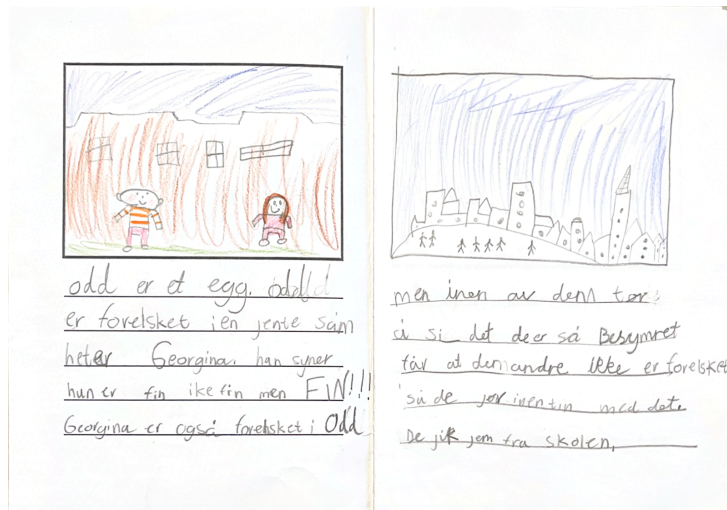 odd er et egg. odd
er forelsket i en jente såm
heter Georgina. han syner
hun er fin ike fin men FIN!!!
Georgina er også forelsket i Odd
men inen av dem tør
å si det de er så Besymret
får at dem andre ikke er forelsket
så de jør inentin med det.
De jik jem fra skolen.